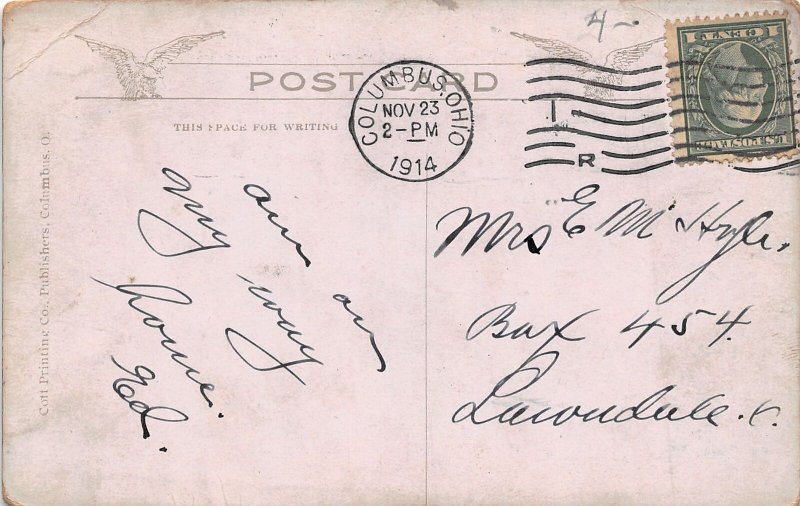 4-
POST CARD
1 CENT 1
U.S. POSTAGE
COLUMBUS, OHIO
NOV 23
2-PM
1914
R
THIS SPACE FOR WRITING
Cott Printing Co., Publishers, Columbus, O.
am on
my way
home.
Ed.
Mrs E M Hyle.
Box 454.
Lawndale.